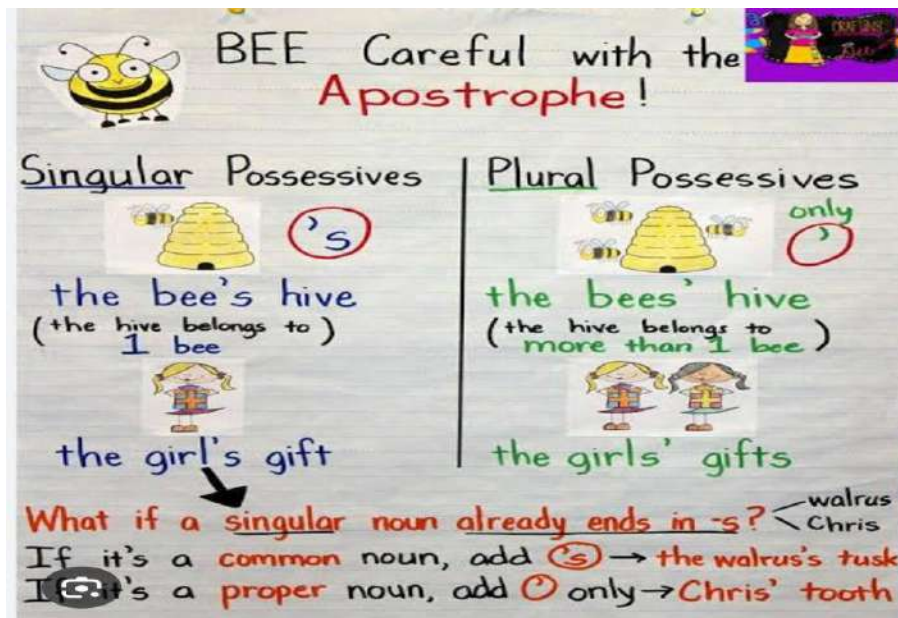 BEE Careful with the
Apostrophe!
Singular Possessives
's
the bee's hive
(the hive belongs to)
1 bee
the girl's gift
Plural Possessives
only
'
the bees' hive
(the hive belongs to
more than 1 bee)
the girls' gifts
What if a singular noun already ends in -s?
walrus
Chris
If it's a common noun, add 's → the walrus's tusk
If it's a proper noun, add ' only → Chris' tooth